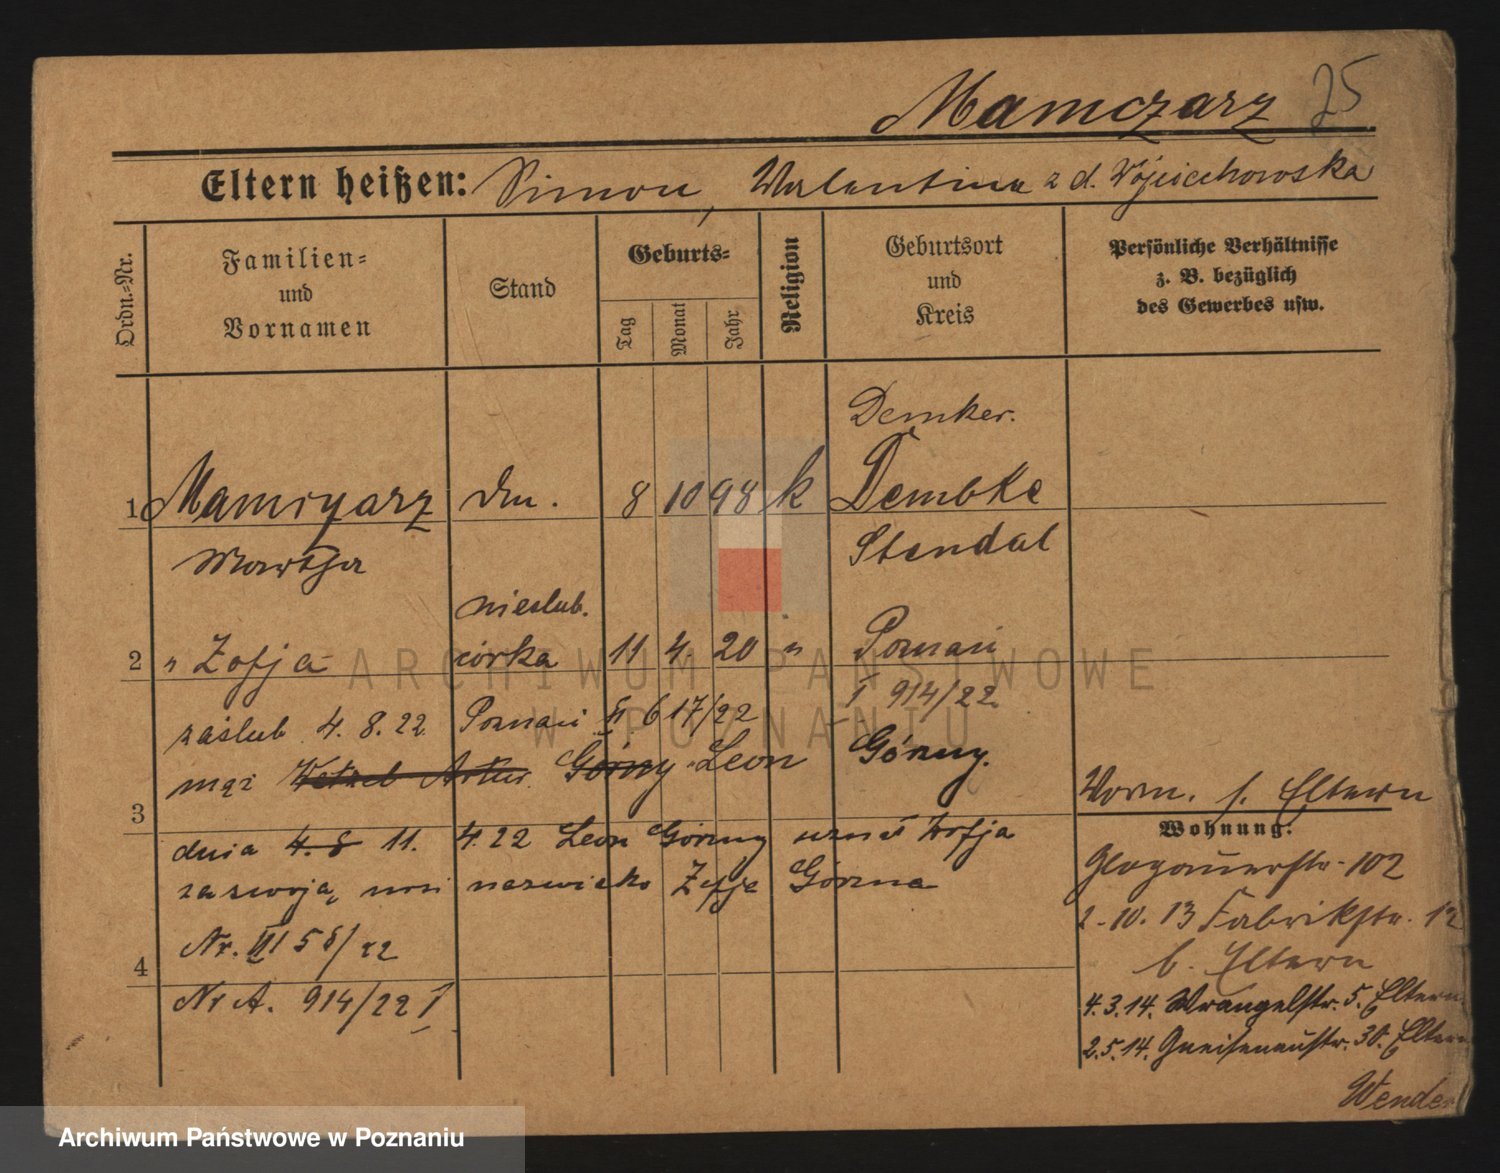 Mamczarz 25
Eltern heißen: Simon, Valentina z d. Wojciechowska
Ordn.-Nr.
Familien- und Vornamen
Stand
Geburts-
Tag
Monat
Jahr
Religion
Geburtsort und Kreis
Persönliche Verhältnisse
z. B. bezüglich
des Gewerbes usw.
Demker.
1 Mamczarz dm. 8 10 98 k Dembke
Martha Stendal
nieslub.
2 " Zofja córka 11 4. 20 " Poznań
zaślub 4. 8. 22 Poznań II 617/22 I 914/22
mąż Artur Górny Leon Górny.
Vorm. s. Eltern
3
Wohnung:
dnia 4. 8 11. 4. 22 Leon Górny uznał Zofja
za swoją, nosi nazwisko Zofja Górna
Glogauerstr. 102
2. 10. 13 Fabrikstr. 12
b. Eltern
Nr. VI 58/22
4
Nr A. 914/22 I
4. 3. 14. Wrangelstr. 5. Eltern
2. 5. 14. Gneisenaustr. 30. Eltern
Wenden
ARCHIWUM PAŃSTWOWE
W POZNANIU
Archiwum Państwowe w Poznaniu